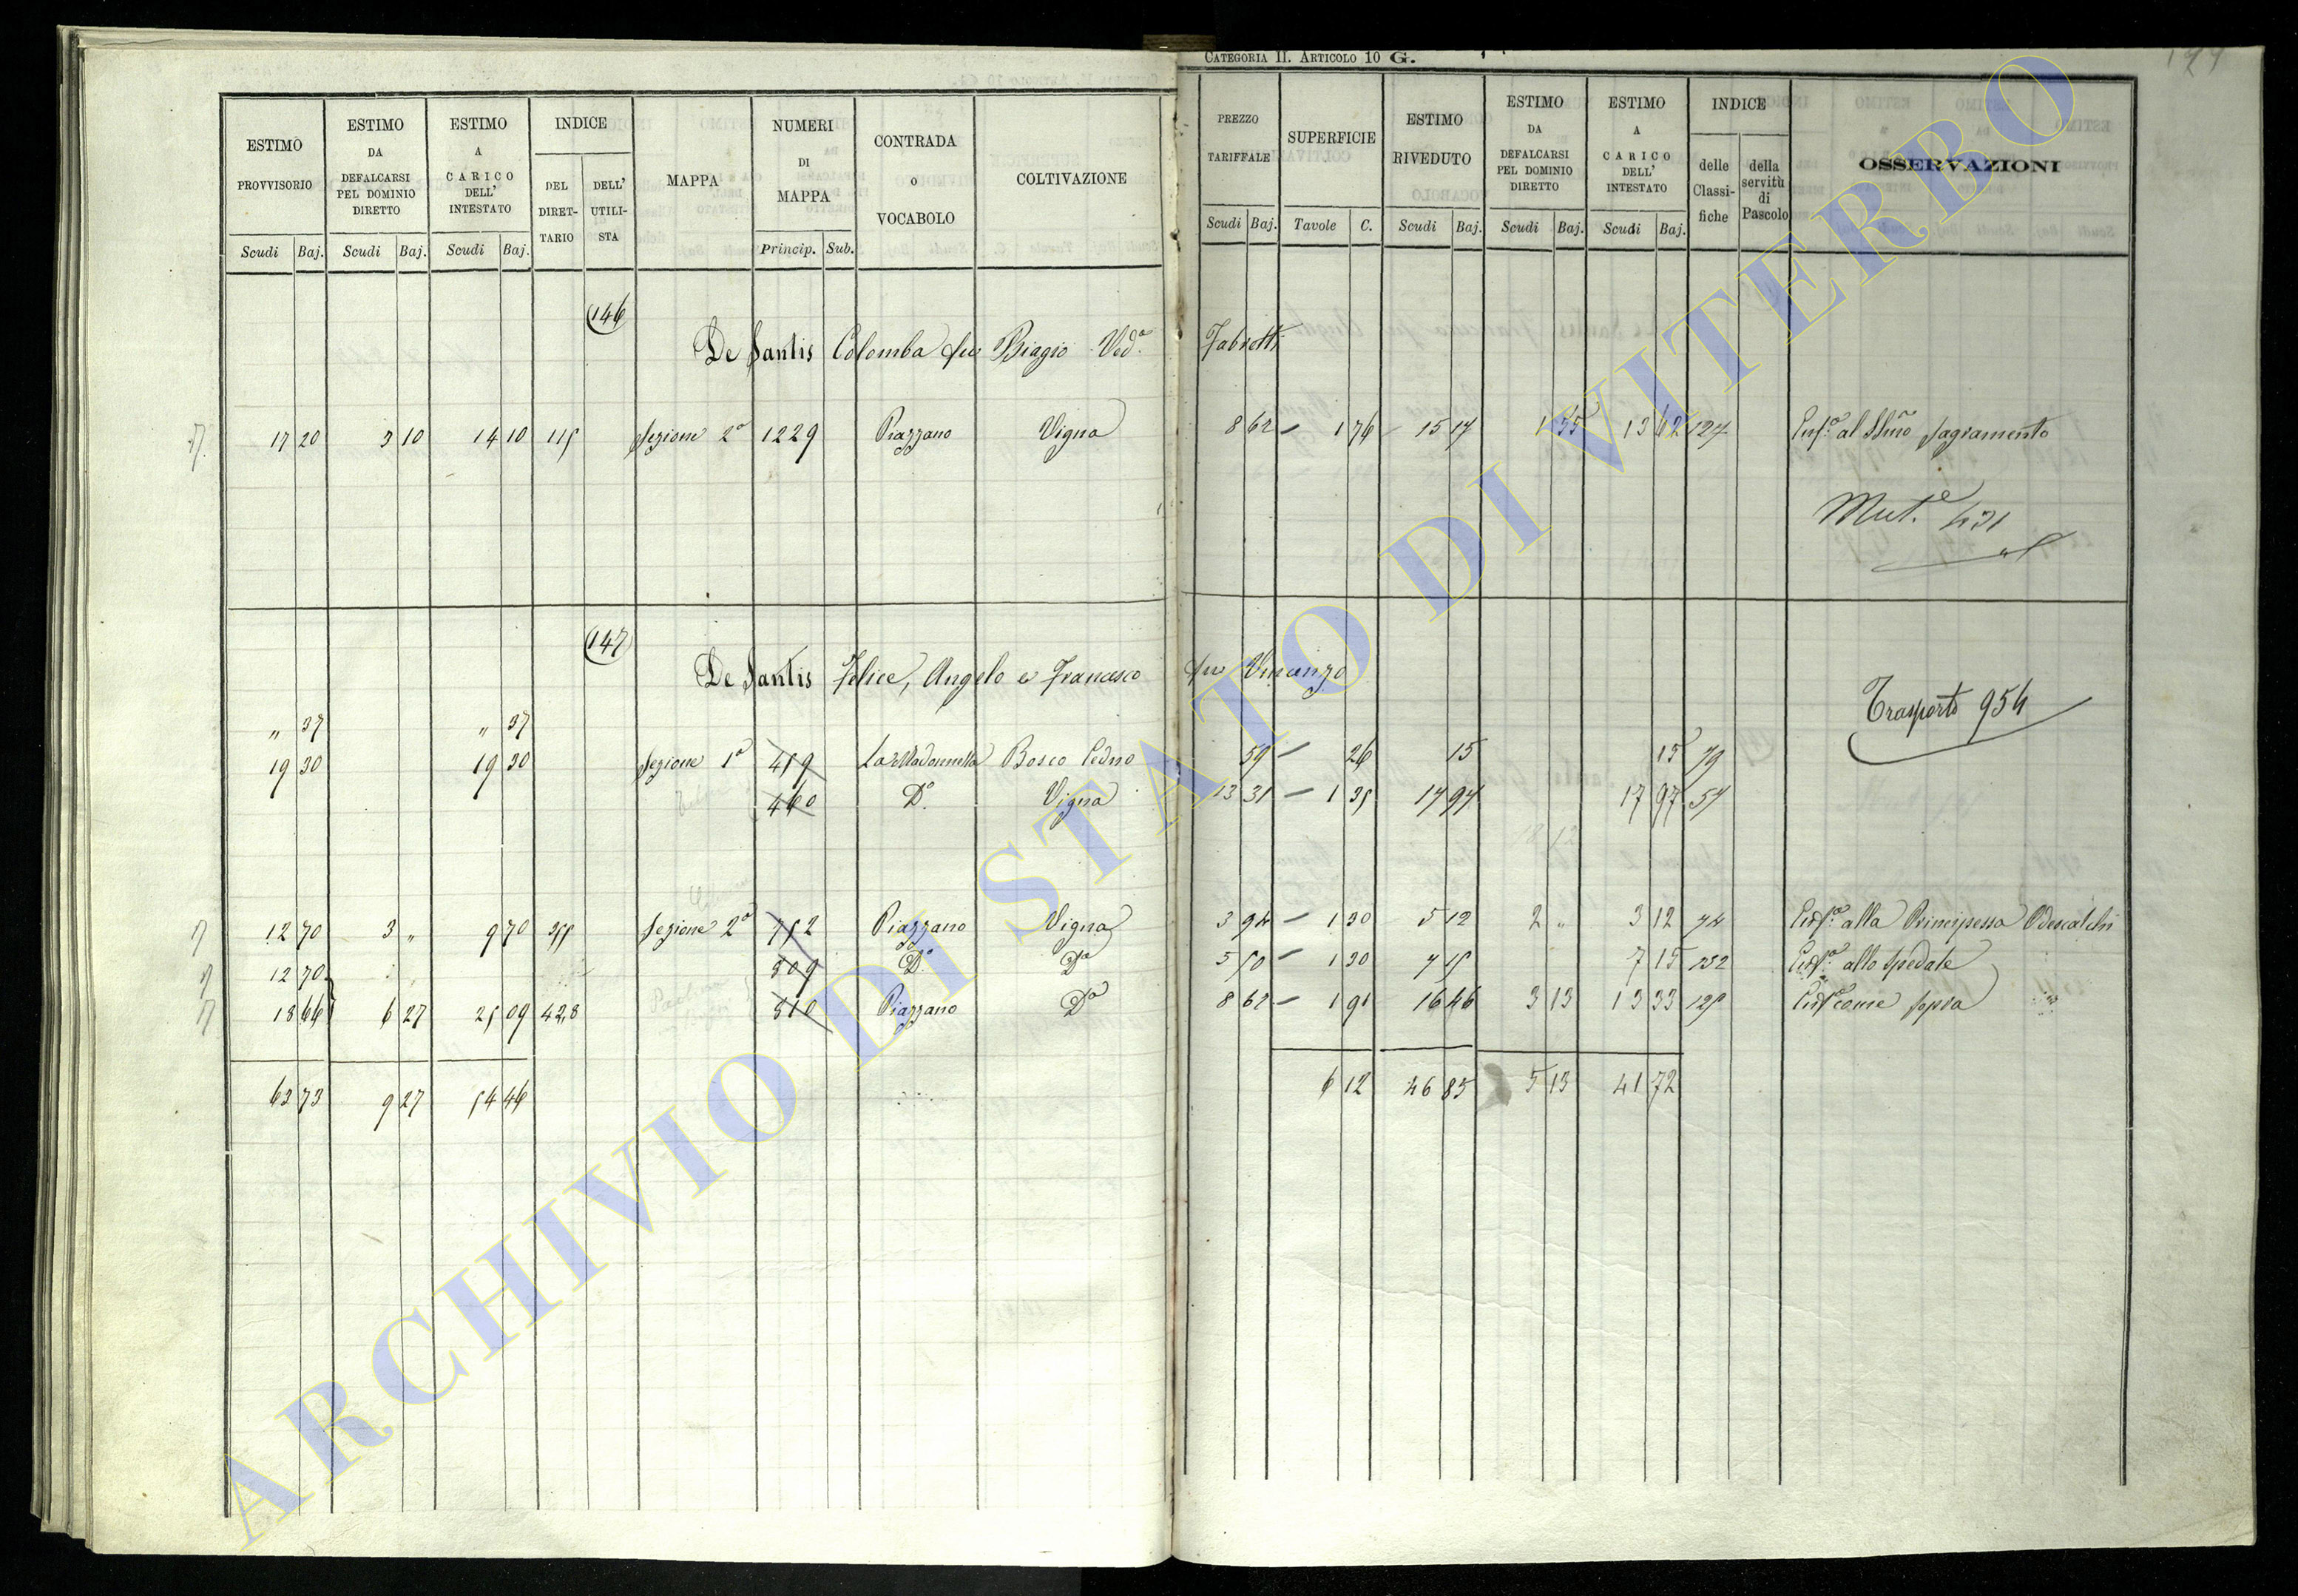 CATEGORIA II. ARTICOLO 10 G.
ESTIMO PROVVISORIO Scudi Baj.
ESTIMO DA DEFALCARSI PEL DOMINIO DIRETTO Scudi Baj.
ESTIMO A CARICO DELL' INTESTATO Scudi Baj.
INDICE DEL DIRET-TARIO DELL' UTILI-STA
MAPPA
NUMERI DI MAPPA Princip. Sub.
CONTRADA o VOCABOLO
COLTIVAZIONE
PREZZO TARIFFALE Scudi Baj.
SUPERFICIE Tavole C.
ESTIMO RIVEDUTO Scudi Baj.
ESTIMO DA DEFALCARSI PEL DOMINIO DIRETTO Scudi Baj.
ESTIMO A CARICO DELL' INTESTATO Scudi Baj.
INDICE delle Classi-fiche della servitù di Pascolo
OSSERVAZIONI
146
De Santis Colomba fu Biagio Ved.a Fabretti
17 20 3 10 14 10 115 Sezione 2a 1229 Piazzano Vigna 8 62 — 1 76 15 17 1 55 13 62 124 Enf.a al SSmo Sagramento
Mut.e 431
147
De Santis Felice, Angelo e Francesco fu Vincenzo
Trasporto 954
„ 37 „ 37
19 30 19 30 Sezione 1a 459 La Madonnella Bosco Ceduo 59 — 26 15 15 79
460 D.o Vigna 13 31 — 1 35 17 97 17 97 57
12 70 3 „ 9 70 Sezione 2a 752 Piazzano Vigna 3 94 — 1 30 5 12 2 „ 3 12 74 Enf.a alla Principessa Odescalchi
12 70 809 D.o D.a 5 50 — 1 30 7 15 7 15 132 Enf.a allo Spedale
18 66 6 27 25 09 428 810 Piazzano D.a 8 62 — 1 91 16 46 3 13 13 33 125 Enf.a come sopra
63 73 9 27 54 46 6 12 46 85 5 13 41 72
ARCHIVIO DI STATO DI VITERBO